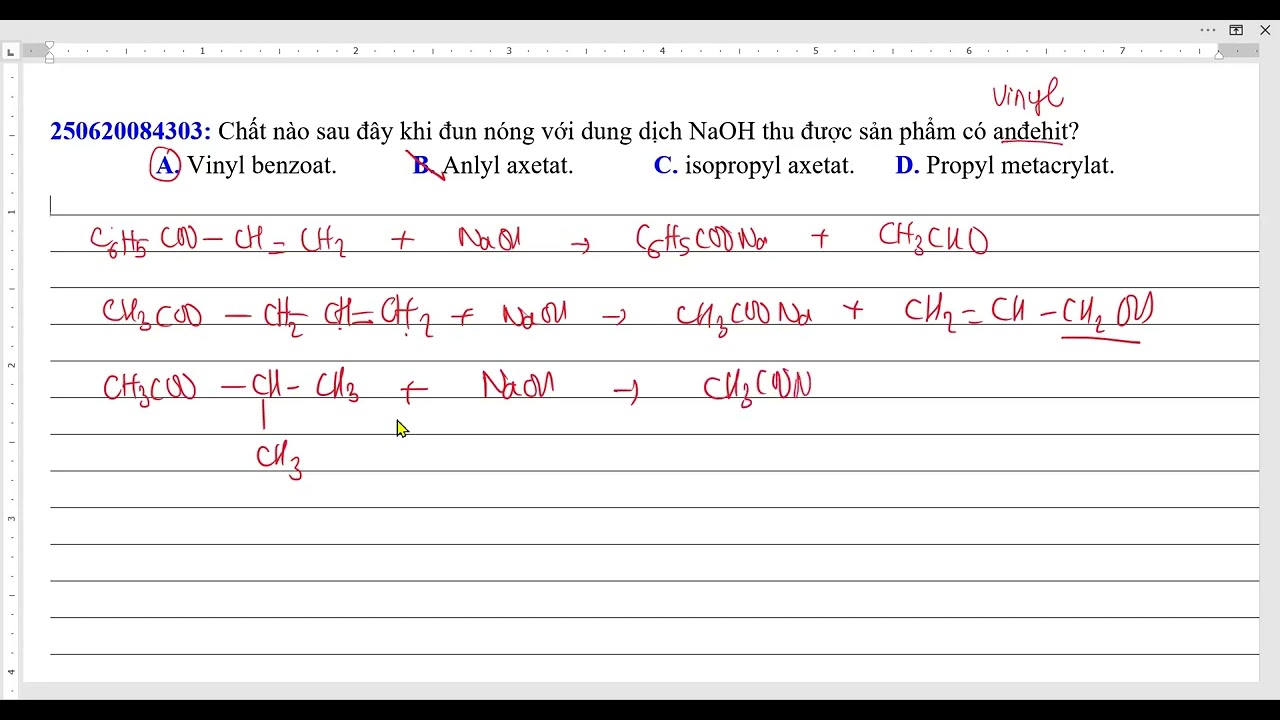 1 2 3 4 5 6 7
vinyl
250620084303: Chất nào sau đây khi đun nóng với dung dịch NaOH thu được sản phẩm có anđehit?
A. Vinyl benzoat. B. Anlyl axetat. C. isopropyl axetat. D. Propyl metacrylat.
C6H5COO–CH=CH2 + NaOH → C6H5COONa + CH3CHO
CH3COO – CH2–CH=CH2 + NaOH → CH3COONa + CH2=CH–CH2OH
CH3COO –CH–CH3 + NaOH → CH3COON
CH3
1
2
3
4